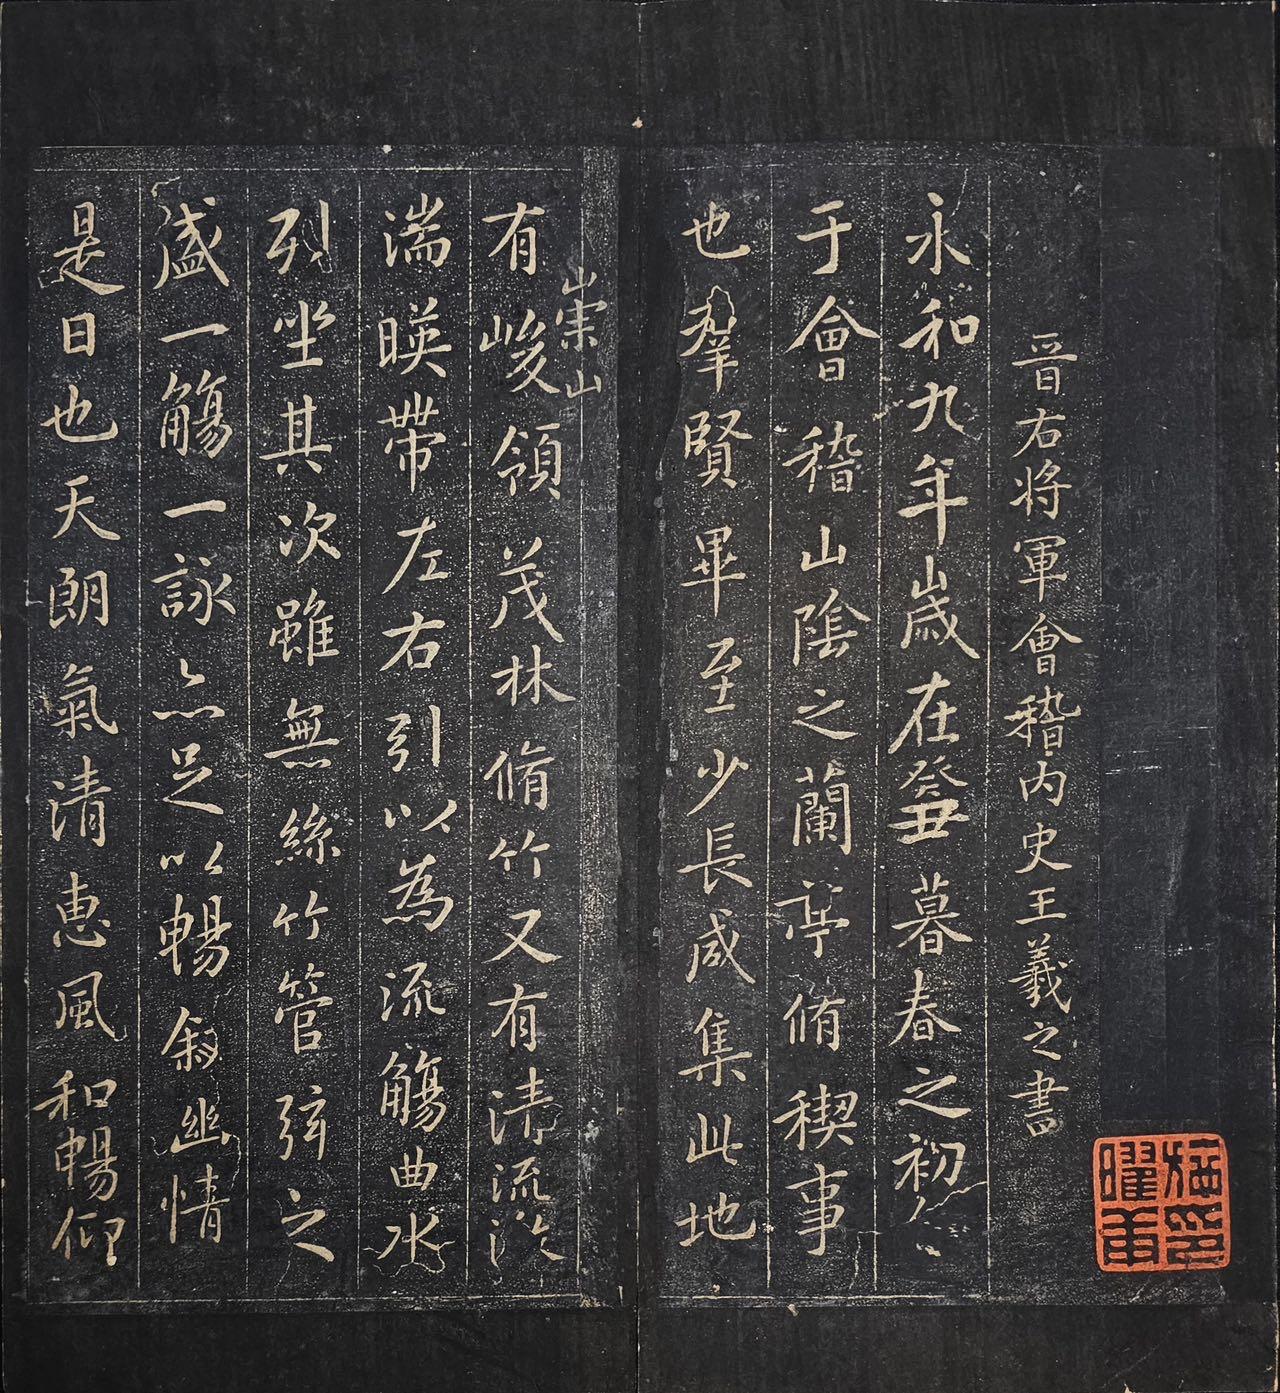 晉右將軍會稽內史王羲之書
永和九年歲在癸丑暮春之初會
于會稽山陰之蘭亭脩稧事
也羣賢畢至少長咸集此地
崇山
有峻領茂林脩竹又有清流激
湍暎帶左右引以為流觴曲水
列坐其次雖無絲竹管弦之
盛一觴一詠亦足以暢敘幽情
是日也天朗氣清惠風和暢仰